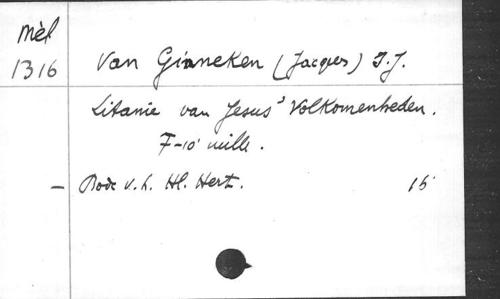 Mèl
1316
Van Ginneken (Jacques) S.J.
Litanie van Jesus' Volkomenheden.
7-10e mille.
— Bode v. h. Hl. Hert. 15